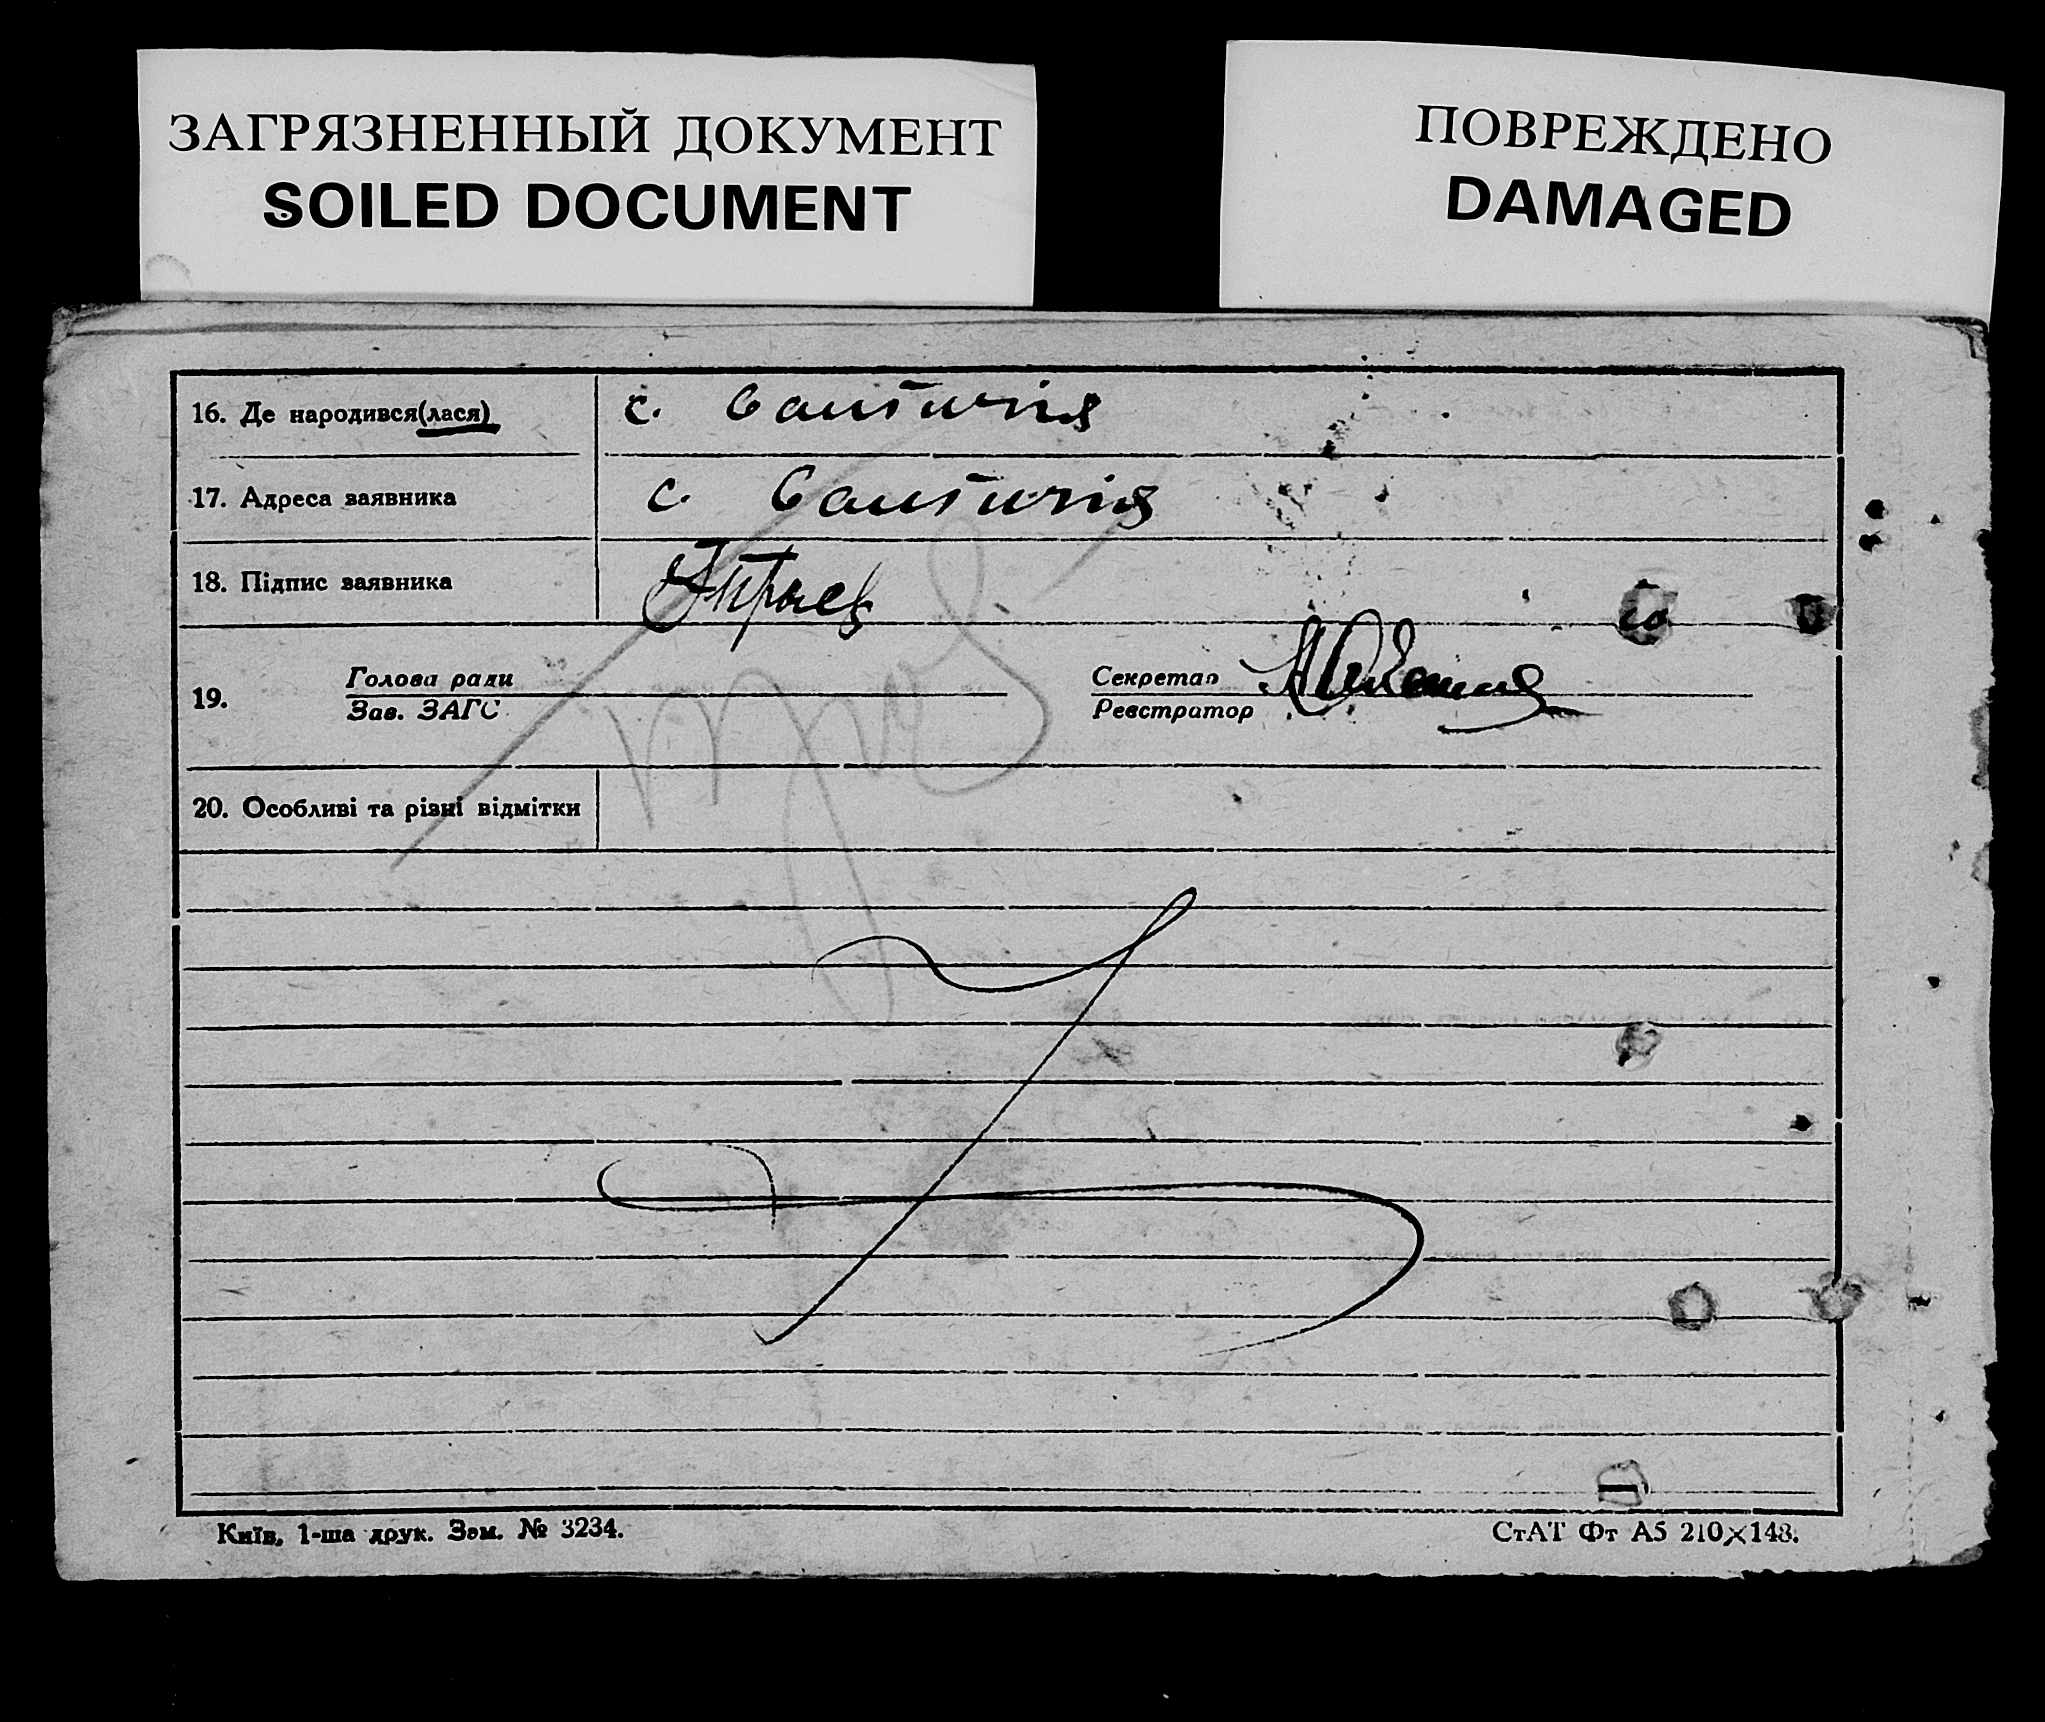 ЗАГРЯЗНЕННЫЙ ДОКУМЕНТ
SOILED DOCUMENT
ПОВРЕЖДЕНО
DAMAGED
16. Де народився(лася) с.
17. Адреса заявника с.
18. Підпис заявника
19. Голова ради
Зав. ЗАГС
Секретар
Реєстратор
20. Особливі та різні відмітки
Київ, 1-ша друк. Зам. № 3234.
СтАТ Фт А5 210×148.